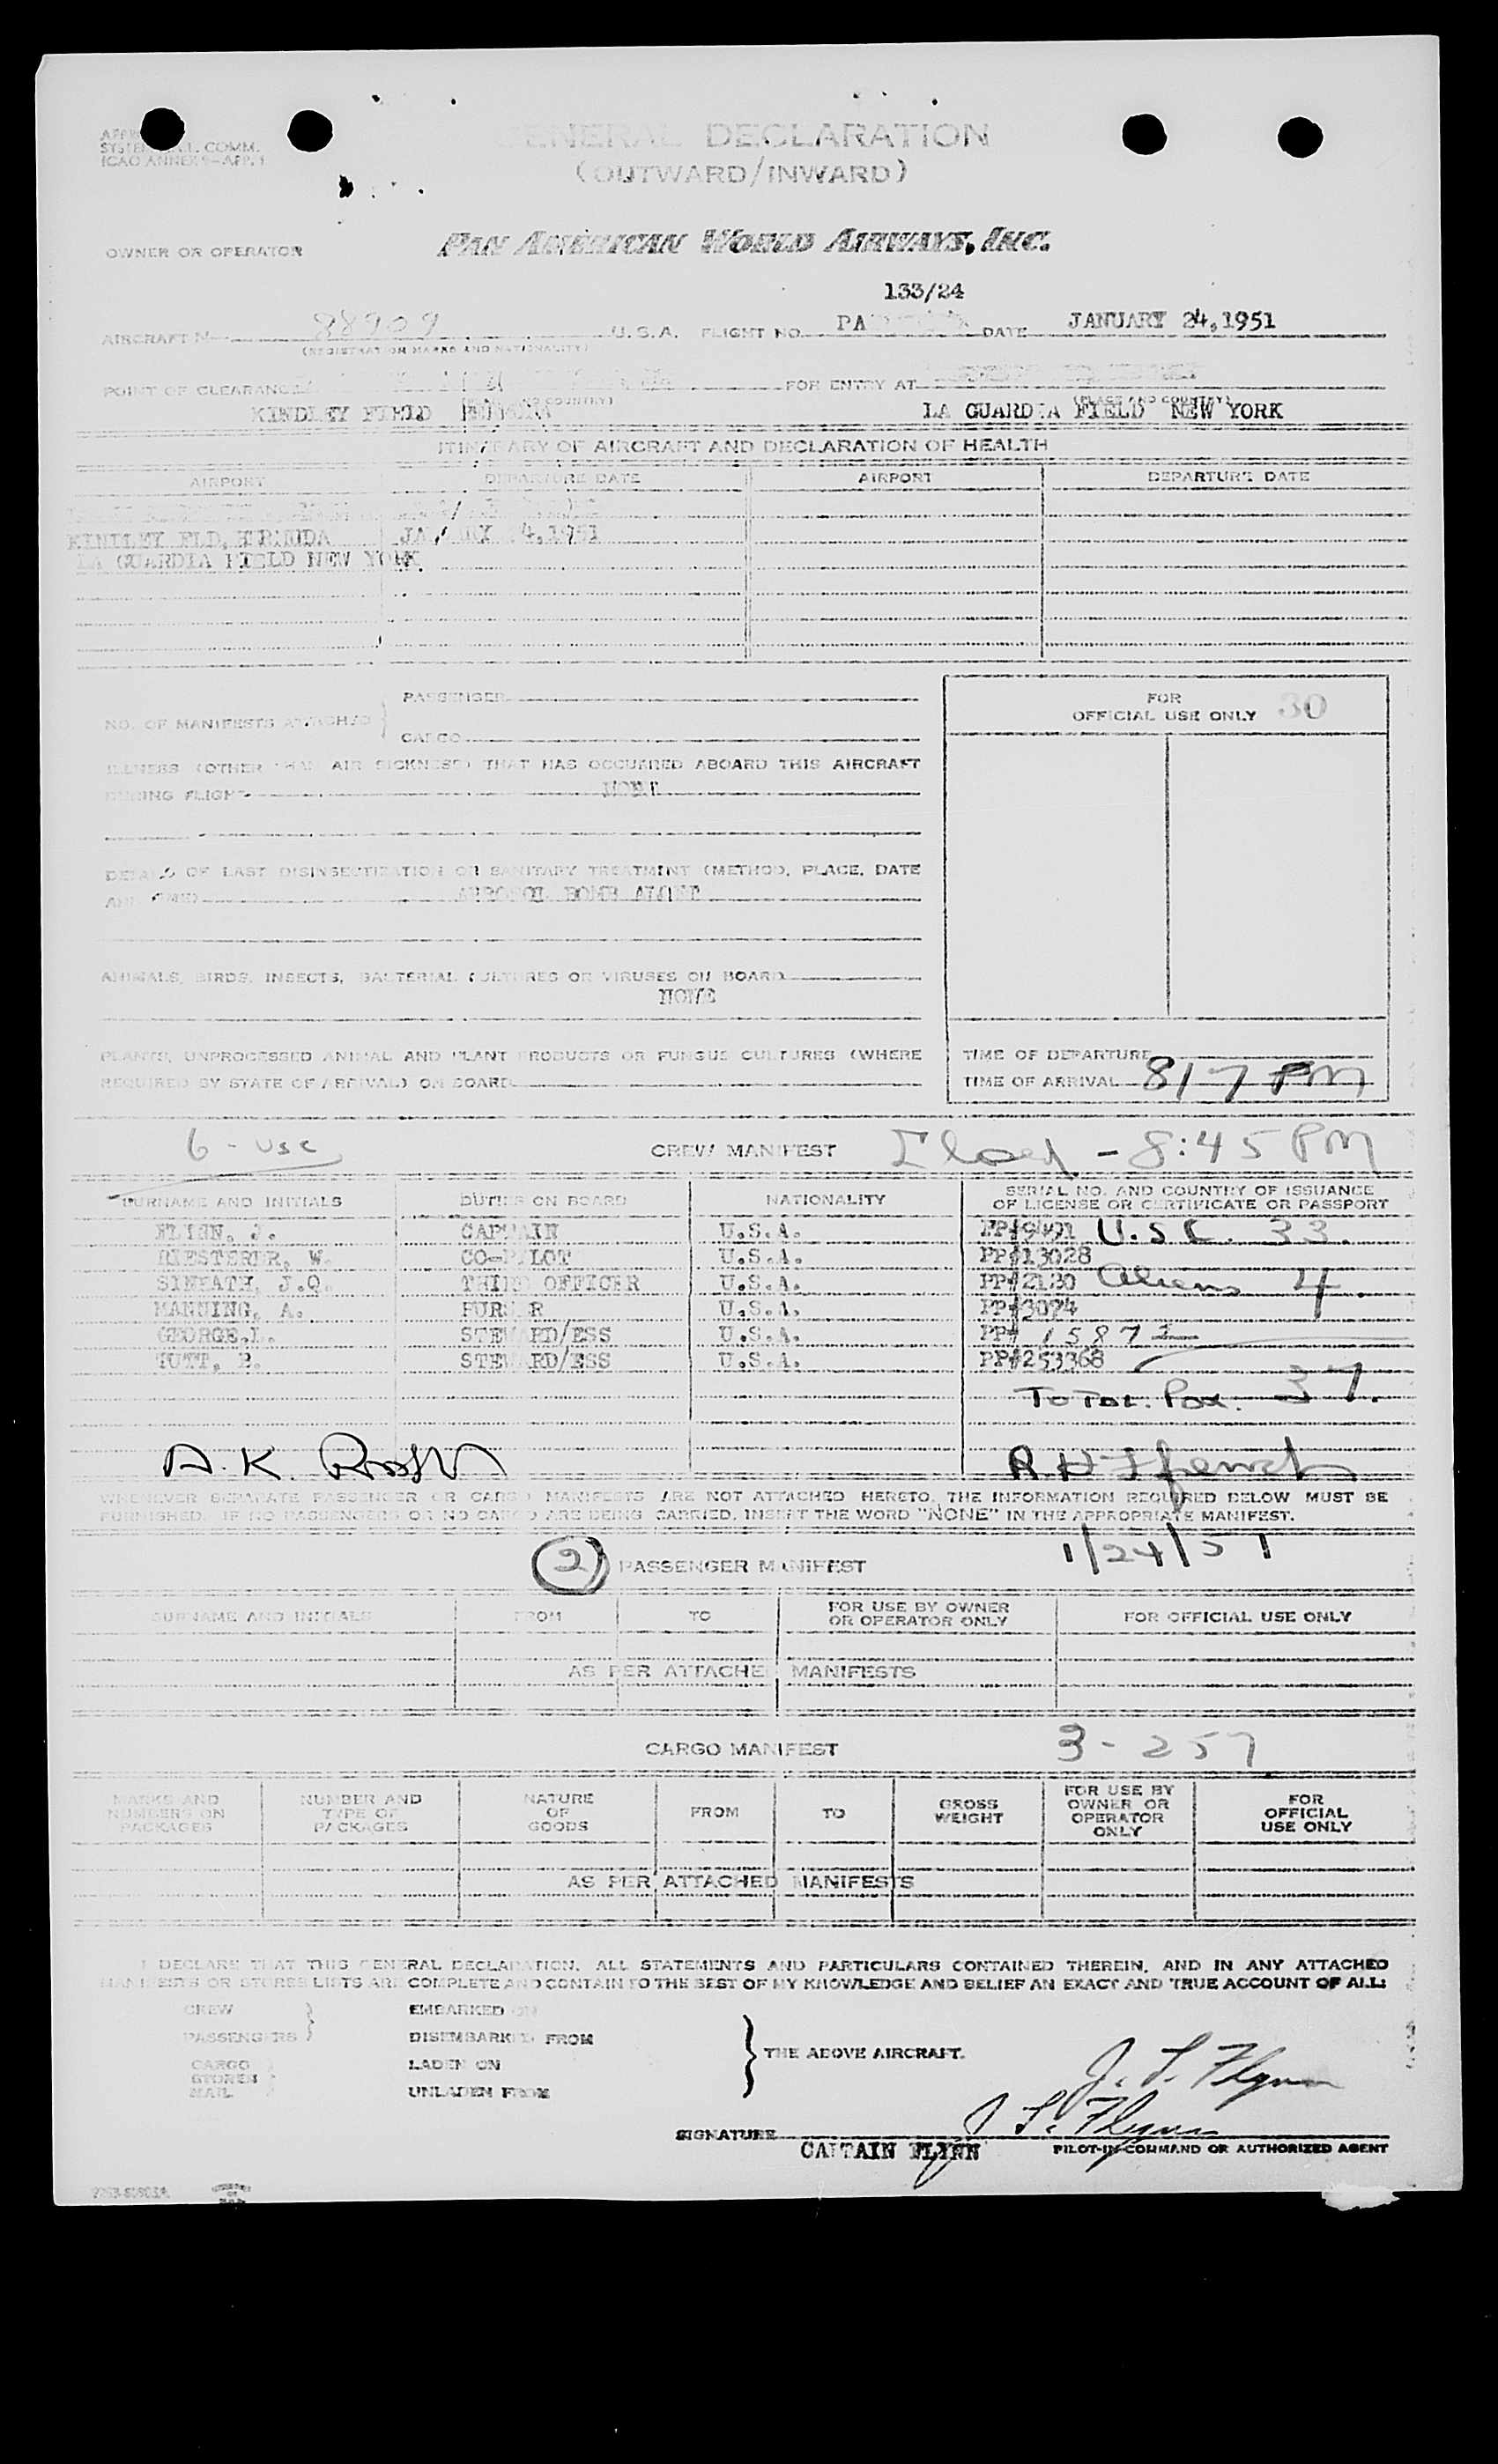 GENERAL DECLARATION
(OUTWARD/INWARD)
ICAO ANNEX 9-APP. 1
OWNER OR OPERATOR PAN AMERICAN WORLD AIRWAYS, INC.
133/24
AIRCRAFT N- 88909 U.S.A. FLIGHT NO. PA DATE JANUARY 24, 1951
(REGISTRATION MARKS AND NATIONALITY)
POINT OF CLEARANCE FOR ENTRY AT
(PLACE AND COUNTRY)
KINDLEY FIELD LA GUARDIA FIELD NEW YORK
ITINERARY OF AIRCRAFT AND DECLARATION OF HEALTH
AIRPORT DEPARTURE DATE AIRPORT DEPARTURE DATE
KINDLEY FLD, BERMUDA JANUARY 24, 1951
LA GUARDIA FIELD NEW YORK.
PASSENGER
NO. OF MANIFESTS ATTACHED
CARGO
FOR
OFFICIAL USE ONLY 30
ILLNESS (OTHER THAN AIR SICKNESS) THAT HAS OCCURRED ABOARD THIS AIRCRAFT
DURING FLIGHT NONE
DETAILS OF LAST DISINSECTIZATION OR SANITARY TREATMENT (METHOD, PLACE, DATE
AND TIME) AEROSOL BOMB
ANIMALS, BIRDS, INSECTS, BACTERIAL CULTURES OR VIRUSES ON BOARD
NONE
PLANTS, UNPROCESSED ANIMAL AND PLANT PRODUCTS OR FUNGUS CULTURES (WHERE
REQUIRED BY STATE OF ARRIVAL) ON BOARD
TIME OF DEPARTURE
TIME OF ARRIVAL 817 PM
6 - USC CREW MANIFEST - 8:45 PM
SURNAME AND INITIALS DUTIES ON BOARD NATIONALITY SERIAL NO. AND COUNTRY OF ISSUANCE
OF LICENSE OR CERTIFICATE OR PASSPORT
J. CAPTAIN U.S.A. PP#9491 U.S.C. 33.
RIESTERER, W. CO-PILOT U.S.A. PP#13028
SINEATH, J.Q. THIRD OFFICER U.S.A. PP#2180 Aliens 4.
MANNING, A. PURSER U.S.A. PP#3074
GEORGE, STEWARD/ESS U.S.A. PP# 15872
STEWARD/ESS U.S.A. PP#253368
Total Pax. 37.
A. K.
WHENEVER SEPARATE PASSENGER OR CARGO MANIFESTS ARE NOT ATTACHED HERETO, THE INFORMATION REQUIRED BELOW MUST BE
FURNISHED. IF NO PASSENGERS OR NO CARGO ARE BEING CARRIED, INSERT THE WORD "NONE" IN THE APPROPRIATE MANIFEST.
1/24/51
(2) PASSENGER MANIFEST
SURNAME AND INITIALS FROM TO FOR USE BY OWNER
OR OPERATOR ONLY FOR OFFICIAL USE ONLY
AS PER ATTACHED MANIFESTS
CARGO MANIFEST 3 - 257
MARKS AND
NUMBERS ON
PACKAGES
NUMBER AND
TYPE OF
PACKAGES
NATURE
OF
GOODS
FROM TO
GROSS
WEIGHT
FOR USE BY
OWNER OR
OPERATOR
ONLY
FOR
OFFICIAL
USE ONLY
AS PER ATTACHED MANIFESTS
I DECLARE THAT THIS GENERAL DECLARATION, ALL STATEMENTS AND PARTICULARS CONTAINED THEREIN, AND IN ANY ATTACHED
MANIFESTS OR STORES LISTS ARE COMPLETE AND CONTAIN TO THE BEST OF MY KNOWLEDGE AND BELIEF AN EXACT AND TRUE ACCOUNT OF ALL:
CREW EMBARKED ON
PASSENGERS DISEMBARKED FROM
THE ABOVE AIRCRAFT.
CARGO LADEN ON
STORES
MAIL UNLADEN FROM
J. L. Flynn
J L. Flynn
SIGNATURE
CAPTAIN FLYNN PILOT-IN-COMMAND OR AUTHORIZED AGENT